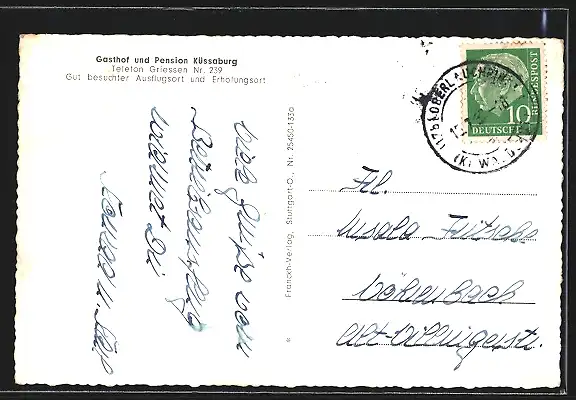 Gasthof und Pension Küssaburg
Telefon Griessen Nr. 239
Gut besuchter Ausflugsort und Erholungsort
Viele Grüsse vom
widmet Dir
Franckh-Verlag, Stuttgart-O., Nr. 25450-133a
10
DEUTSCHE
BUNDESPOST
(17b) OBERLAUCHRINGEN
Frl.
Ursula Fritsche
Vöhrenbach
Alt-Villingerstr.